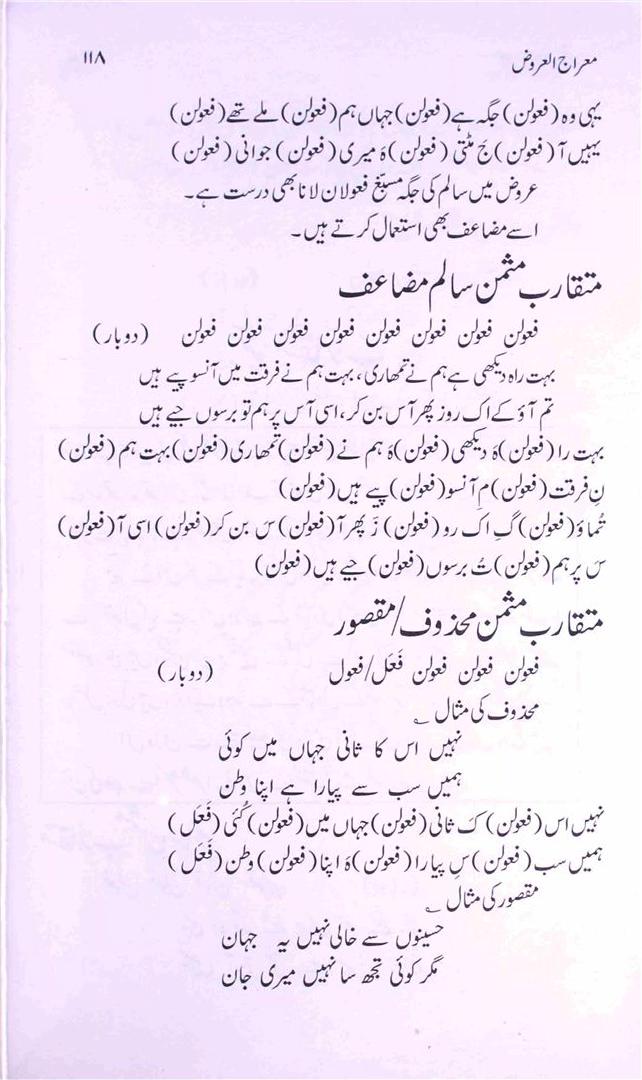 معراج العروض ۱۱۸
یہی وہ (فعولن) جگہ ہے (فعولن) جہاں ہم (فعولن) ملے تھے (فعولن)
یہیں آ (فعولن) جَ مٹتی (فعولن) ہَ میری (فعولن) جوانی (فعولن)
عروض میں سالم کی جگہ مسبّغ فعولان لانا بھی درست ہے۔
اسے مضاعف بھی استعمال کرتے ہیں۔
متقارب مثمن سالم مضاعف
فعولن فعولن فعولن فعولن فعولن فعولن فعولن فعولن (دو بار)
بہت راہ دیکھی ہے ہم نے تمھاری، بہت ہم نے فرقت میں آنسو پیے ہیں
تم آؤ کے اک روز پھر آس بن کر، اسی آس پر ہم تو برسوں جیے ہیں
بہت را (فعولن) ہَ دیکھی (فعولن) ہَ ہم نے (فعولن) تمھاری (فعولن) بہت ہم (فعولن)
نِ فرقت (فعولن) مِ آنسو (فعولن) پیے ہیں (فعولن)
تُماؤ (فعولن) گِ اک رو (فعولن) زَ پھر آ (فعولن) سَ بن کر (فعولن) اسی آ (فعولن)
سَ پر ہم (فعولن) تُ برسوں (فعولن) جیے ہیں (فعولن)
متقارب مثمن محذوف/مقصور
فعولن فعولن فعولن فَعَل/فعول (دو بار)
محذوف کی مثال ؎
نہیں اس کا ثانی جہاں میں کوئی
ہمیں سب سے پیارا ہے اپنا وطن
نہیں اس (فعولن) کَ ثانی (فعولن) جہاں میں (فعولن) کُئی (فَعَل)
ہمیں سب (فعولن) سِ پیارا (فعولن) ہَ اپنا (فعولن) وطن (فَعَل)
مقصور کی مثال ؎
حسینوں سے خالی نہیں یہ جہان
مگر کوئی تجھ سا نہیں میری جان